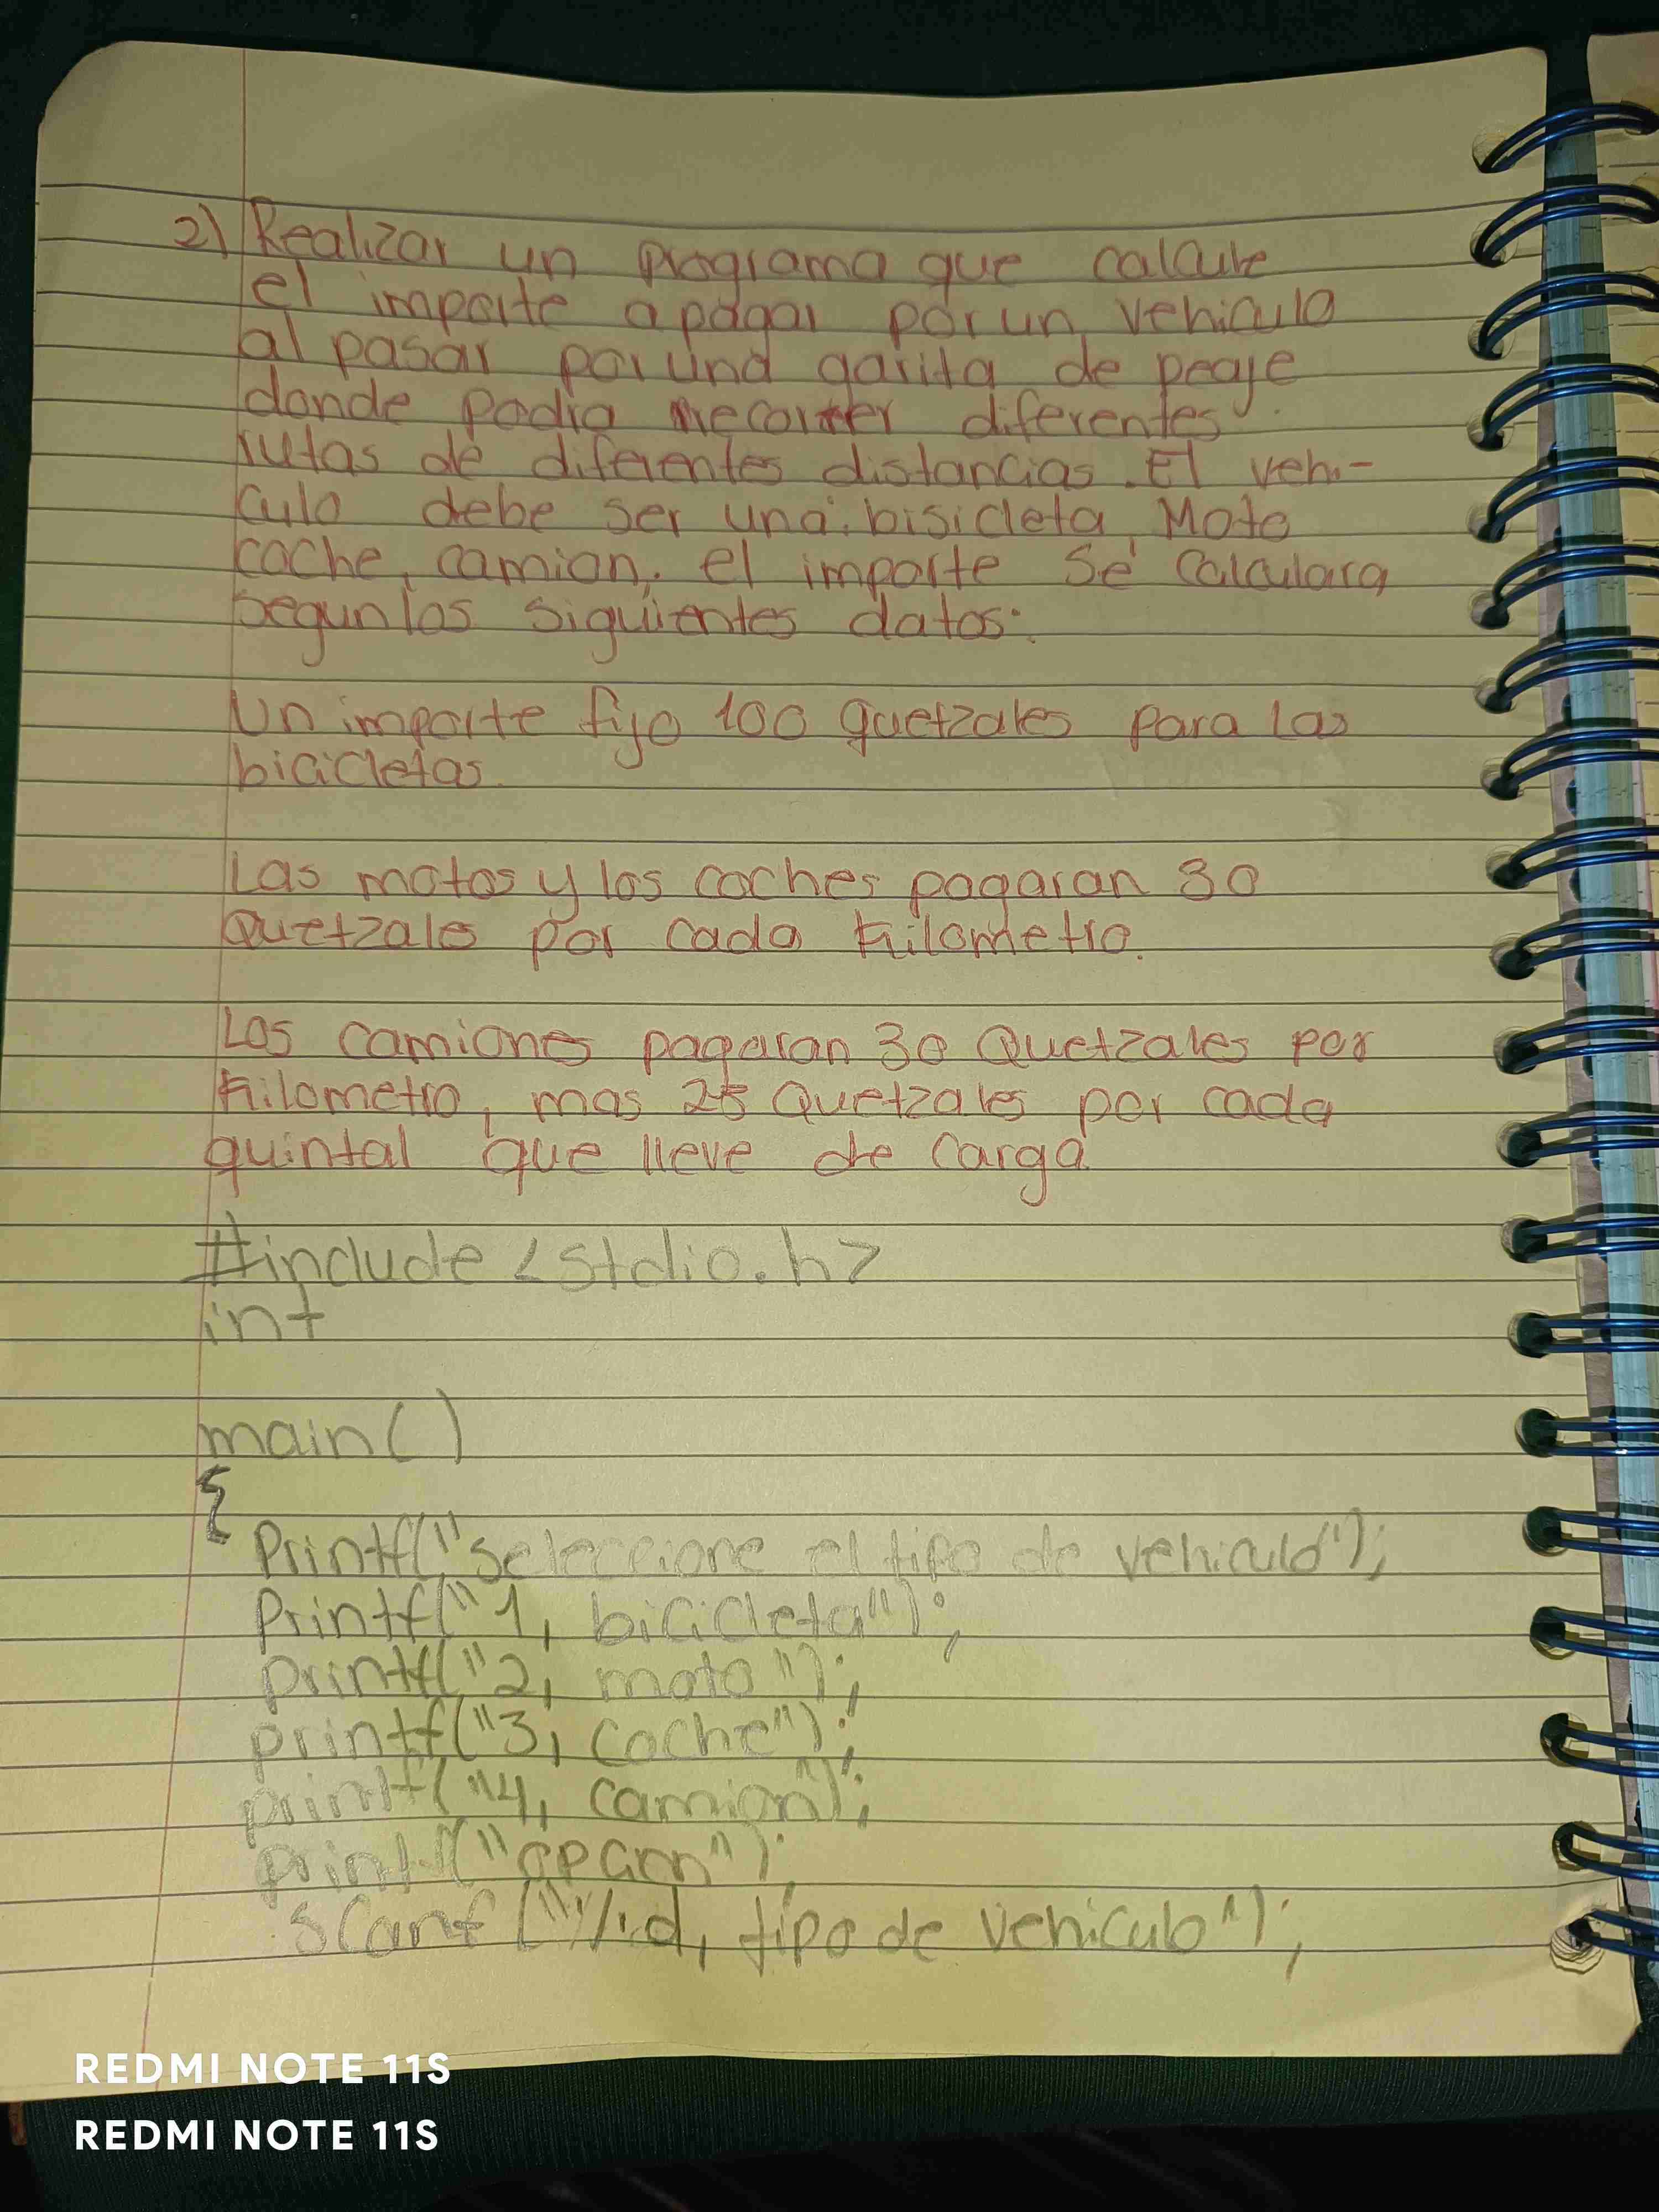 2) Realizar un programa que calcule
el importe a pagar por un vehiculo
al pasar por una garita de peaje
donde podia recorrer diferentes
rutas de diferentes distancias. El vehi-
culo debe ser una: bisicleta, Moto
coche, camion. el importe se calculara
segun los siguientes datos:
Un importe fijo 100 quetzales para las
bicicletas.
Las motos y los coches pagaran 30
Quetzales por cada kilometro.
Los camiones pagaran 30 Quetzales por
kilometro, mas 25 Quetzales por cada
quintal que lleve de carga
#include <stdio.h>
int
main()
{
Printf("Seleccione el tipo de vehiculo");
Printf("1, bicicleta");
printf("2, moto");
printf("3, coche");
printf("4, camion");
printf("opcion");
scanf("%d, tipo de vehiculo");
REDMI NOTE 11S
REDMI NOTE 11S